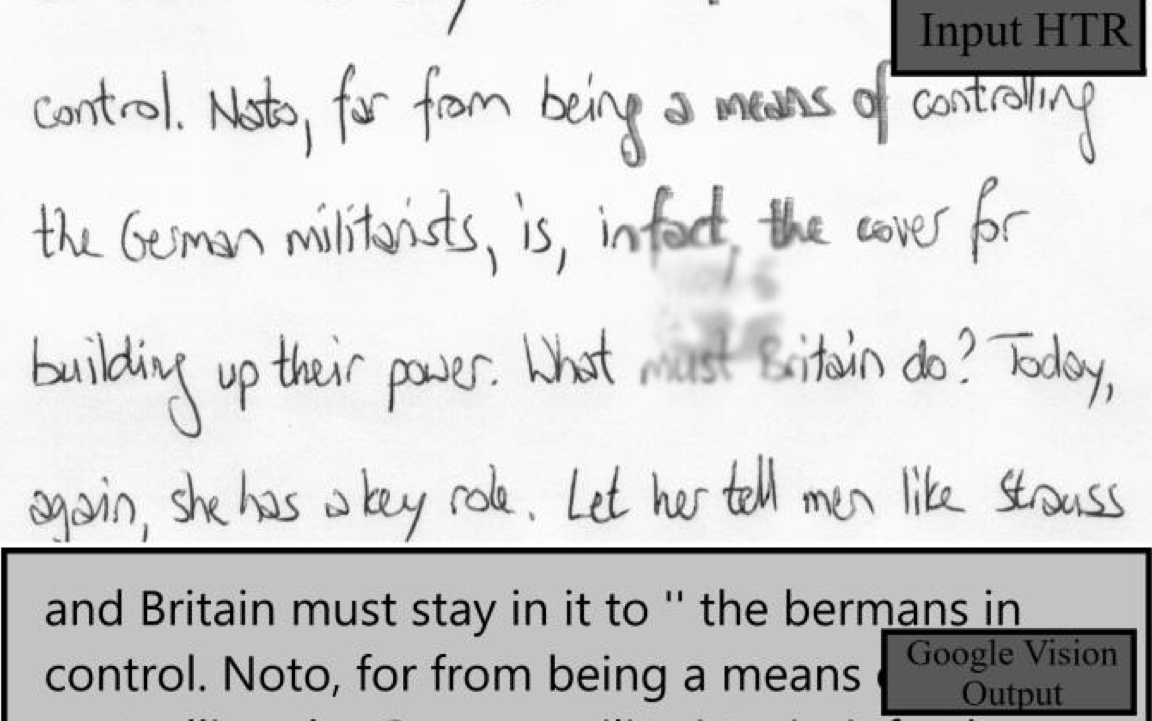 Input HTR
control. Nato, far from being a means of controlling
the German militarists, is, in fact, the cover for
building up their power. What must Britain do? Today,
again, she has a key role. Let her tell men like Strauss
and Britain must stay in it to " the bermans in
control. Noto, for from being a means
Google Vision
Output